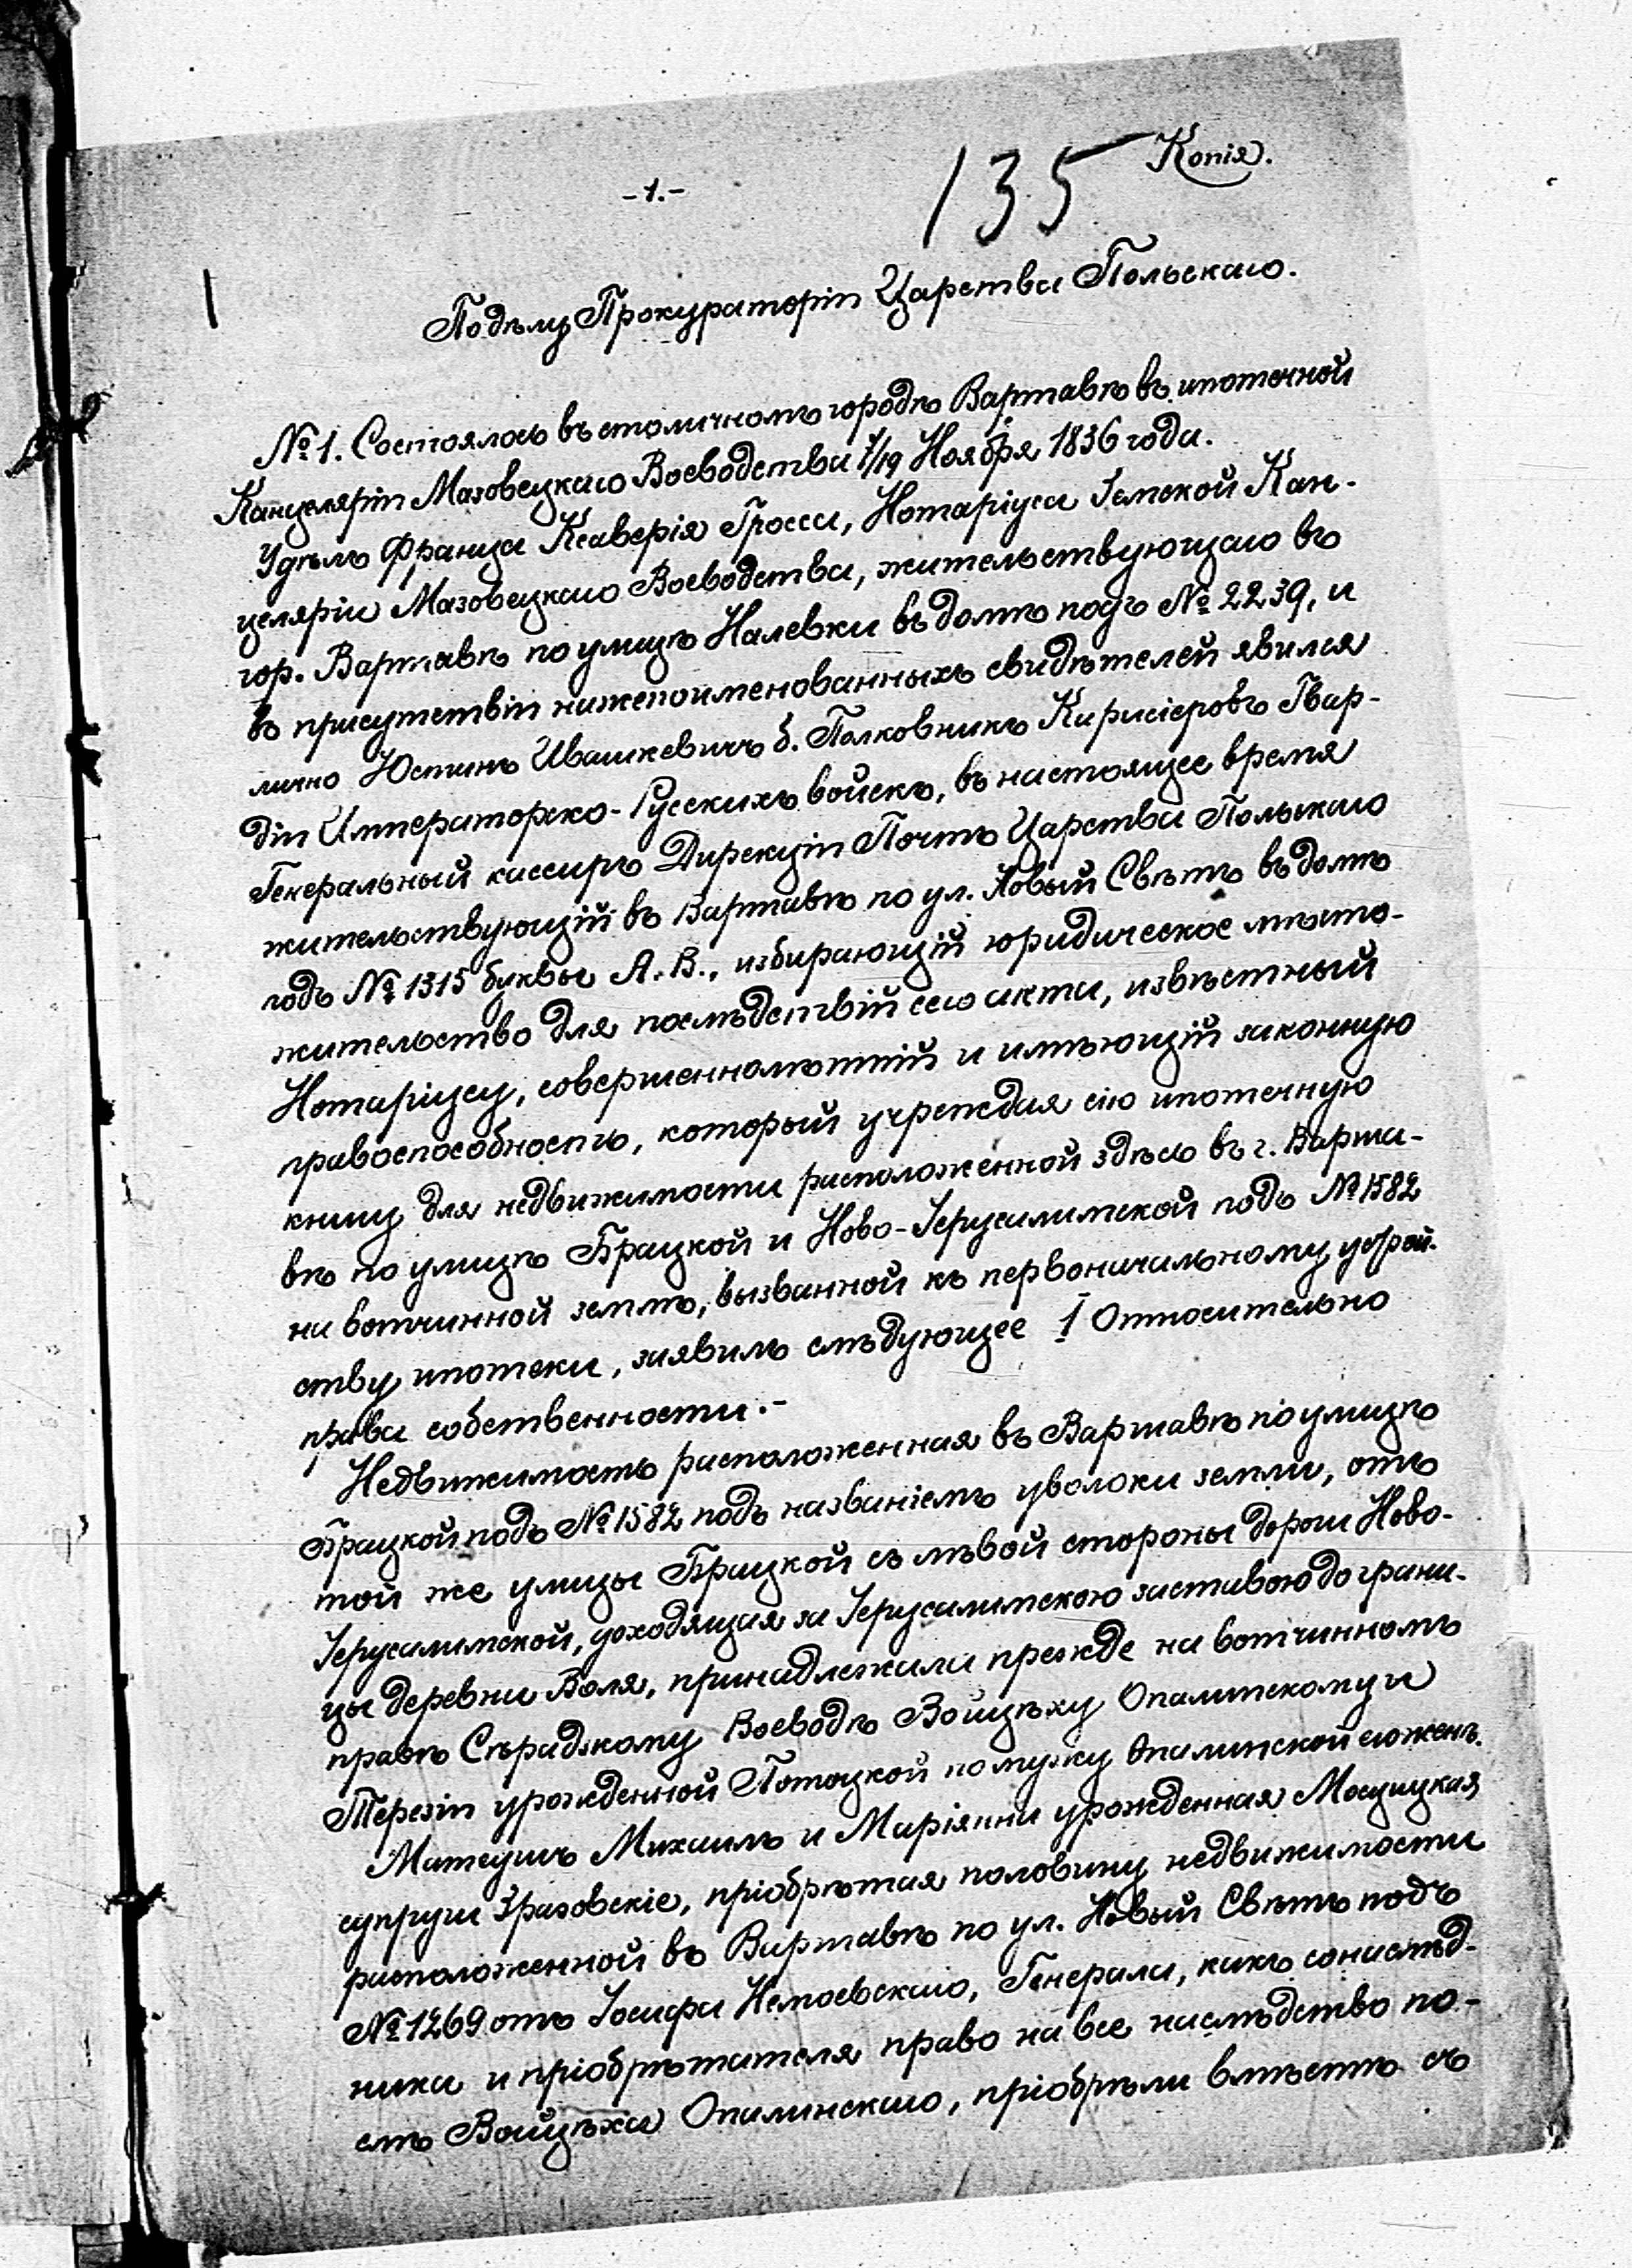 Копія.
135
-1.-
По дѣлу Прокураторіи Царства Польскаго.
№ 1. Состоялось въ столичномъ городѣ Варшавѣ въ ипотечной
Канцеляріи Мазовецкаго Воеводства 7/19 Ноября 1836 года.
У дѣлъ Франца Ксаверія Гросса, Нотаріуса Земской Кан-
целяріи Мазовецкаго Воеводства, жительствующаго въ
гор. Варшавѣ по улицѣ Налевки въ домѣ подъ № 2239, и
въ присутствіи нижепоименованныхъ свидѣтелей явился
лично Юстинъ Ивашкевичъ б. Полковникъ Кирасіеровъ Гвар-
діи Императорско-Русскихъ войскъ, въ настоящее время
Генеральный кассиръ Дирекціи Почтъ Царства Польскаго
жительствующій въ Варшавѣ по ул. Новый Свѣтъ въ домѣ
подъ № 1315 буквы А. В., избирающій юридическое мѣсто-
жительство для послѣдствій сего акта, извѣстный
Нотаріусу, совершеннолѣтній и имѣющій законную
правоспособность, который учреждая сію ипотечную
книгу для недвижимости расположенной здѣсь въ г. Варша-
вѣ по улицѣ Брацкой и Ново-Іерусалимской подъ № 1582
на вотчинной землѣ, вызванной къ первоначальному устрой-
ству ипотеки, заявилъ слѣдующее I Относительно
права собственности.-
Недвижимость расположенная въ Варшавѣ по улицѣ
Брацкой подъ № 1582 подъ названіемъ уволоки земли, отъ
той же улицы Брацкой съ лѣвой стороны дороги Ново-
Іерусалимской, доходящая за Іерусалимскою заставою до грани-
цы деревни Воля, принадлежала прежде на вотчинномъ
правѣ Сѣрадзкому Воеводѣ Войцѣху Опалинскому и
Терезіи урожденной Потоцкой по мужу Опалинской его женѣ.
Матеушъ Михаилъ и Маріянна урожденная Мощицкая
супруги Зразовскіе, пріобрѣтая половину недвижимости
расположенной въ Варшавѣ по ул. Новый Свѣтъ подъ
№ 1269 отъ Іосифа Немоевскаго, Генерала, какъ сонаслѣд-
ника и пріобрѣтателя право на все наслѣдство по-
слѣ Войцѣха Опалинскаго, пріобрѣли вмѣстѣ съ